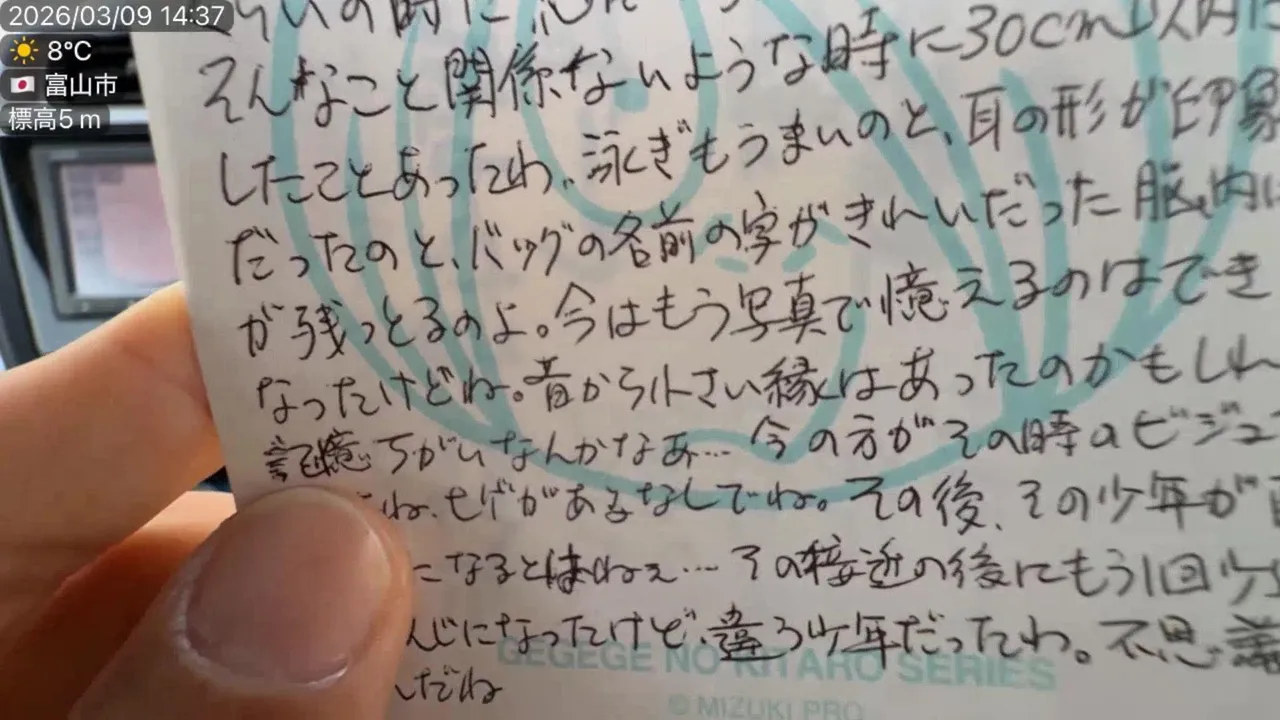 2026/03/09 14:37
8℃
富山市
標高5m
らいの時に
そんなこと関係ないような時に30cm以内に
したことあったわ。泳ぎもうまいのと、耳の形が印象
だったのと、バッグの名前の字がきれいだった脳内に
が残っとるのよ。今はもう写真で憶えるのはでき
なったけどね。昔から小さい縁はあったのかもしれ
記憶ちがいなんかなあ…今の方がその時のビジュ
ね、ヒゲがあるなしでね。その後、その少年が
になるとはねぇ…その接近の後にもう1回少
んじになったけど、違う少年だったわ。不思議
だね
GEGEGE NO KITARO SERIES
© MIZUKI PRO